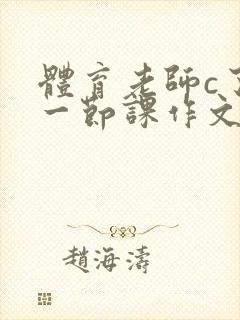 體育老師c
一節課作文
趙海濤